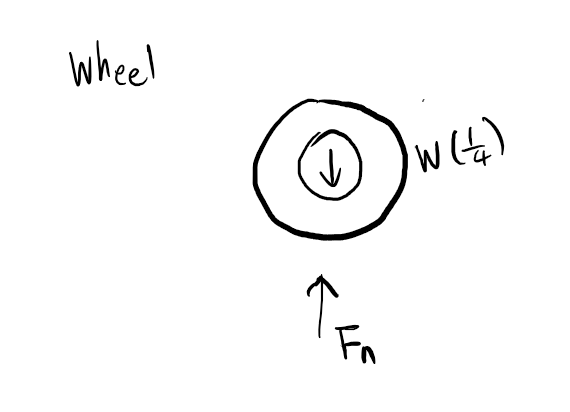 Wheel
W (1/4)
Fn